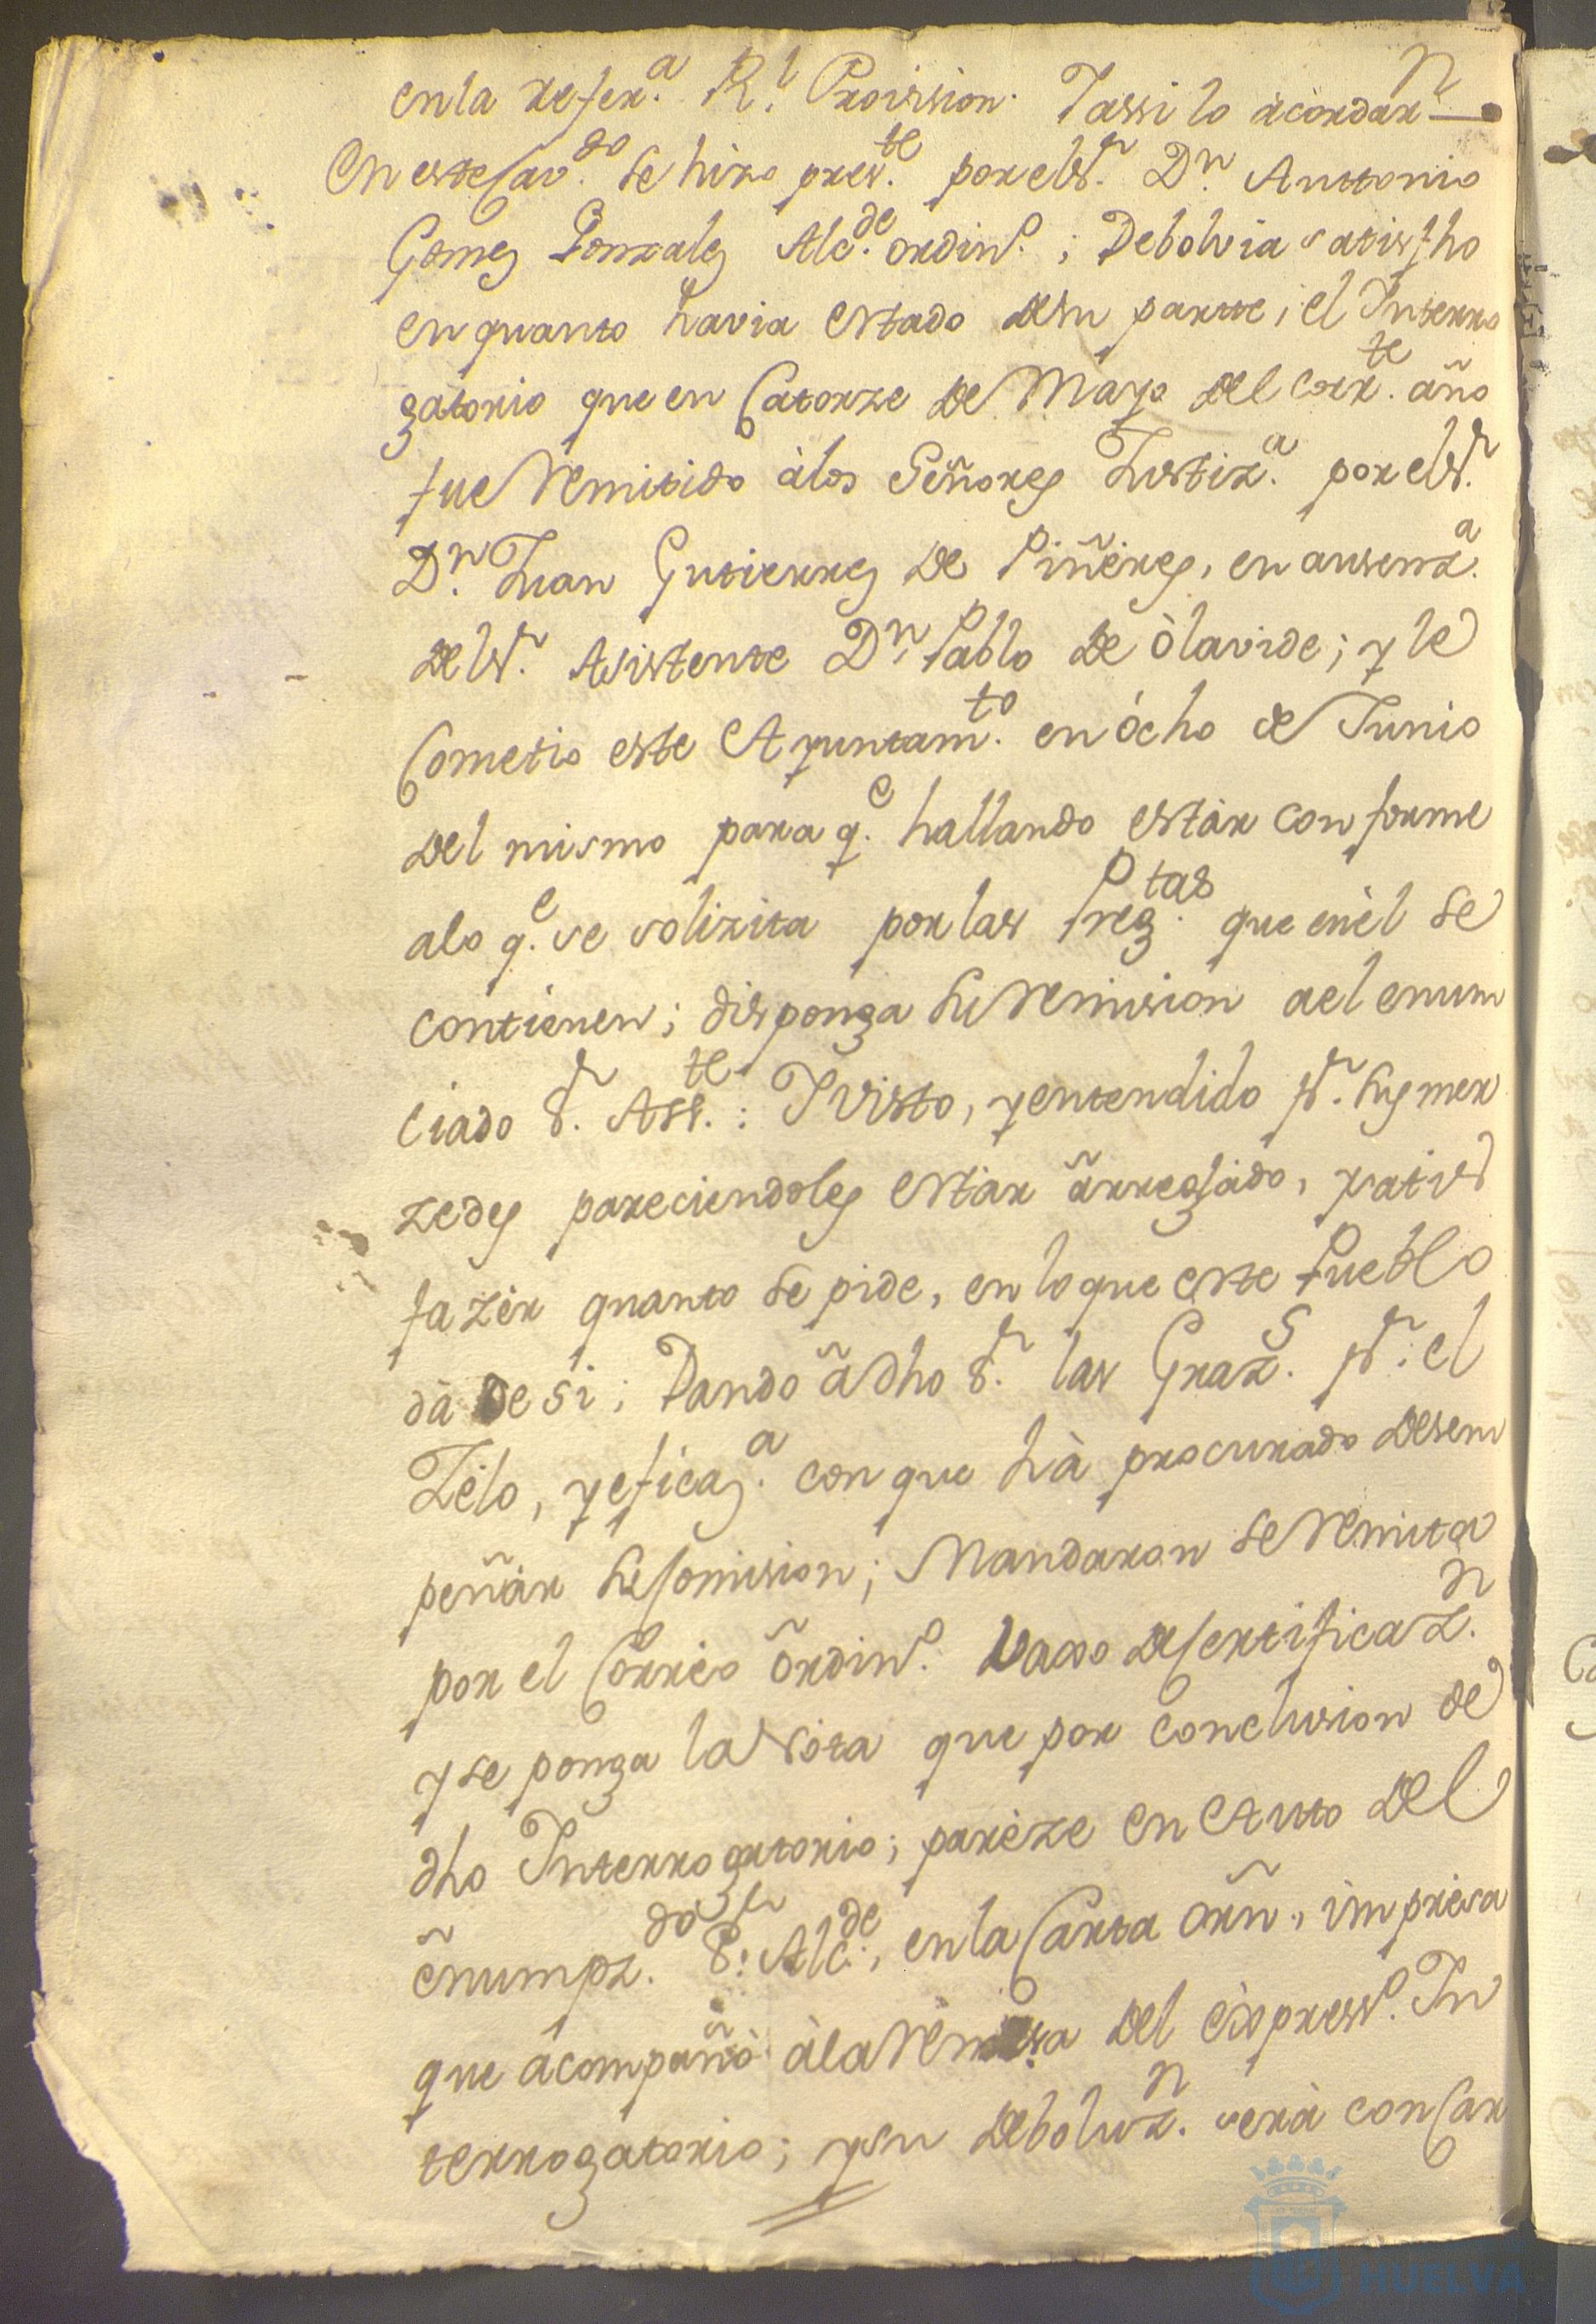 en la refer.ª R.l Provision. Y assi lo àcordar.n
En este Cav.do se hizo pres.te por el S.r D.n Anttonio
Gomez Gonzalez Alc.de ordin.o; Debolvia satisfho
en quanto havia estado de su partte, el Interro
gàtorio que en Catorze de Mayo del corr.te año
fue Remitido à los Señores Justiz.a por el S.r
D.n Juan Gutierrez de Piñerez, en ausenz.a
del S.r Asistente D.n Pablo de Òlavide; y le
Cometio este Ayuntam.to en òcho de Junio
del mismo para q.e hallando estàr conforme
a lo q.e se solizita por las Preg.tas que en èl se
contienen; disponga su Remision a el enum
ciado S.r Ass.te: Y Visto, y entendido p.r sus mer
zedes pareciendoles estàr àrreglado, y satis
fazèr quanto se pide, en lo que este Pueblo
dà de si; Dando à dho S.r las Graz.s p.r el
Zèlo, y eficaz.a con que hà procurado desem
peñàr su Comision; Mandaron se Remita
por el Còrrèo òrdin.o vaxo de Sertificaz.n
y se ponga la Nota que por conclusion de
dho Interrogatorio; parèze en Autto del
ènumpz.do S.r Alc.de, en la Carta òrñ., impresa
que àcompañò à la Remesa del èxpress.o In
terrogatorio; y su Deboluz.n serà con Car
HUELVA